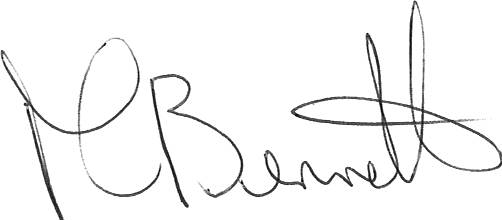 M Bennett